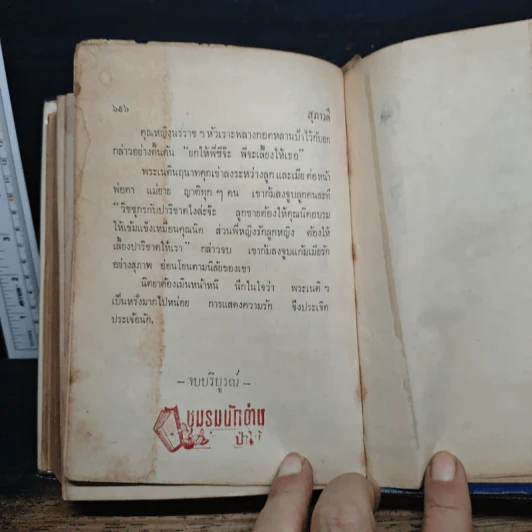 ๖๙๖ สุภาวดี
คุณหญิงนรราช ฯ หัวเราะพลางกอดหลานบ๋าไว้กับอก
กล่าวอย่างตื้นตัน "ยกให้พี่ซีจ๊ะ พี่จะเลี้ยงให้เธอ"
พระเนตินฤนาทคุกเข่าลงระหว่างลูก และเมีย ต่อหน้า
พ่อตา แม่ยาย ญาติทุก ๆ คน เขาก้มลงจูบลูกคนละที
"วิชชุกรกับปาริชาตไงล่ะจ๊ะ ลูกชายต้องให้คุณนิดอบรม
ให้เข้มแข็งเหมือนคุณนิด ส่วนพี่หญิงรักลูกหญิง ต้องให้
เลี้ยงปาริชาตให้เรา" กล่าวจบ เขาก้มลงจูบแก้มเมียรัก
อย่างสุภาพ อ่อนโยนตามนิสัยของเขา
นิดยาต้องเมินหน้าหนี นึกในใจว่า พระเนติ ฯ
เป็นหวังมากไปหน่อย การแสดงความรัก จึงประเจิด
ประเจ้อนัก.
— จบบริบูรณ์ —
ชมรมนักอ่าน